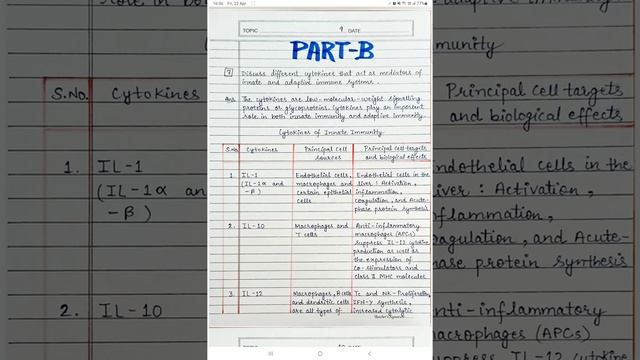 16:06 Fri, 22 Apr
77%
TOPIC 9 DATE
PART-B
7 Discuss different cytokines that act as mediators of
innate and adaptive immune systems.
Ans The cytokines are low-molecular-weight signalling
proteins or glycoproteins. Cytokines play an important
role in both innate immunity and adaptive immunity.
Cytokines of Innate Immunity
S.No. Cytokines Principal Cell sources Principal Cell targets and biological effects
1. IL-1 (IL-1α and -β) Endothelial cells, macrophages and certain epithelial cells Endothelial cells in the liver : Activation, inflammation, coagulation, and Acute-phase protein synthesis
2. IL-10 Macrophages and T. cells Anti-inflammatory macrophages (APCs) suppress IL-12 cytokine production as well as the expression of Co-stimulators and class II MHC molecules
3. IL-12 Macrophages, B cells and dendritic cells are all types of Tc and NK-Proliferation, IFN-γ synthesis, increased Cytolytic
S.No. Cytokines
1. IL-1
(IL-1α an
-β)
2. IL-10
munity
Principal Cell targets
and biological effects
ndothelial cells in the
iver : Activation,
nflammation,
oagulation, and Acute-
hase protein synthesis
nti-inflammatory
acrophages (APCs)